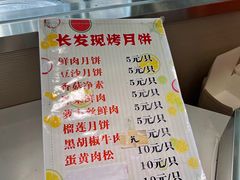 长发现烤月饼
鲜肉月饼 5元/只
豆沙月饼 5元/只
香菇净素 5元/只
鲜肉 5元/只
萝卜丝鲜肉 5元/只
榴莲月饼 元/只
黑胡椒牛肉 10元/只
蛋黄肉松 10元/只
10元/只